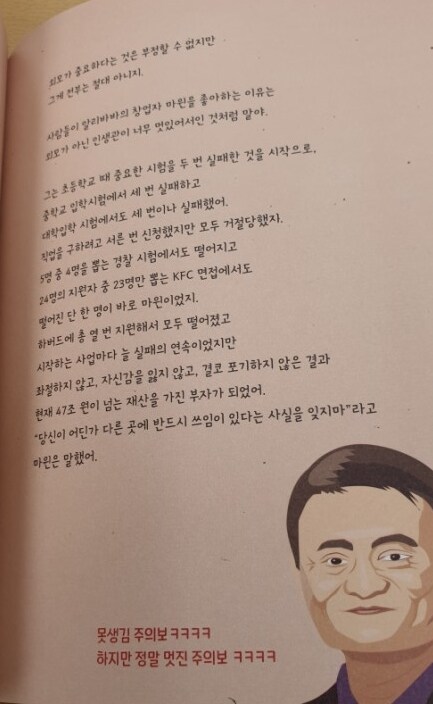 외모가 중요하다는 것은 부정할 수 없지만
그게 전부는 절대 아니지.
사람들이 알리바바의 창업자 마윈을 좋아하는 이유는
외모가 아닌 인생관이 너무 멋있어서인 것처럼 말야.
그는 초등학교 때 중요한 시험을 두 번 실패한 것을 시작으로,
중학교 입학시험에서 세 번 실패하고
대학입학 시험에서도 세 번이나 실패했어.
직업을 구하려고 서른 번 신청했지만 모두 거절당했자.
5명 중 4명을 뽑는 경찰 시험에서도 떨어지고
24명의 지원자 중 23명만 뽑는 KFC 면접에서도
떨어진 단 한 명이 바로 마윈이었지.
하버드에 총 열 번 지원해서 모두 떨어졌고
시작하는 사업마다 늘 실패의 연속이었지만
좌절하지 않고, 자신감을 잃지 않고, 결코 포기하지 않은 결과
현재 47조 원이 넘는 재산을 가진 부자가 되었어.
“당신이 어딘가 다른 곳에 반드시 쓰임이 있다는 사실을 잊지마”라고
마윈은 말했어.
못생김 주의보ㅋㅋㅋㅋ
하지만 정말 멋진 주의보 ㅋㅋㅋㅋ